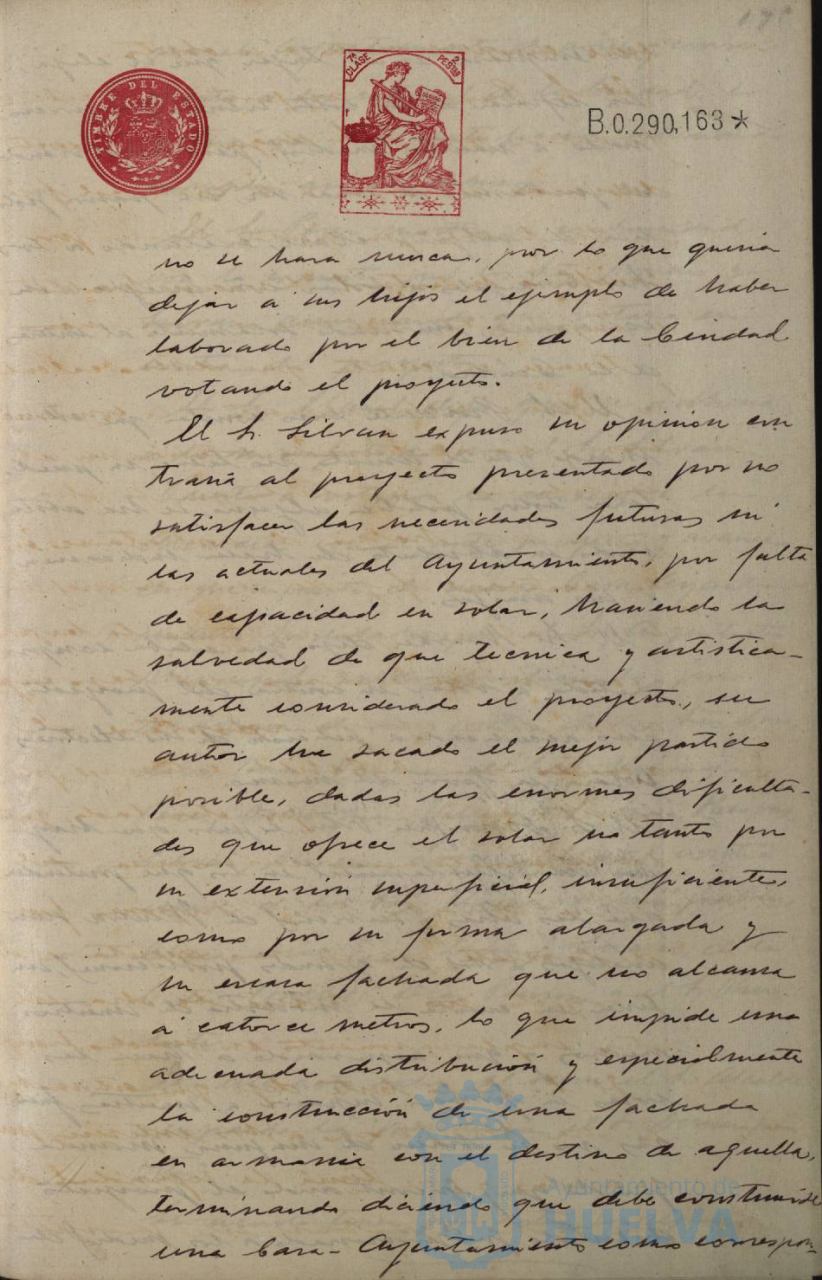 TIMBRE DEL ESTADO
7ª CLASE 2 PESTAS
B.0.290,163*
no se hara nunca, por lo que queria
dejar a sus hijos el ejemplo de haber
laborado por el bien de la Ciudad
votando el proyecto.
El Sr. Silvan expuso su opinion con
traria al proyecto presentado por no
satisfacer las necesidades futuras ni
las actuales del Ayuntamiento, por falta
de capacidad en solar, haciendo la
salvedad de que tecnica y artistica-
mente considerado el proyecto, su
autor ha sacado el mejor partido
posible, dadas las enormes dificulta-
des que ofrece el solar no tanto por
su extensión superficial, insuficiente,
como por su forma alargada y
su escasa fachada que no alcanza
á catorce metros, lo que impide una
adecuada distribución y especialmente
la construcción de una fachada
en armonia con el destino de aquella,
terminando diciendo que debe construirse
una Casa-Ayuntamiento como correspon-
Ayuntamiento de
HUELVA